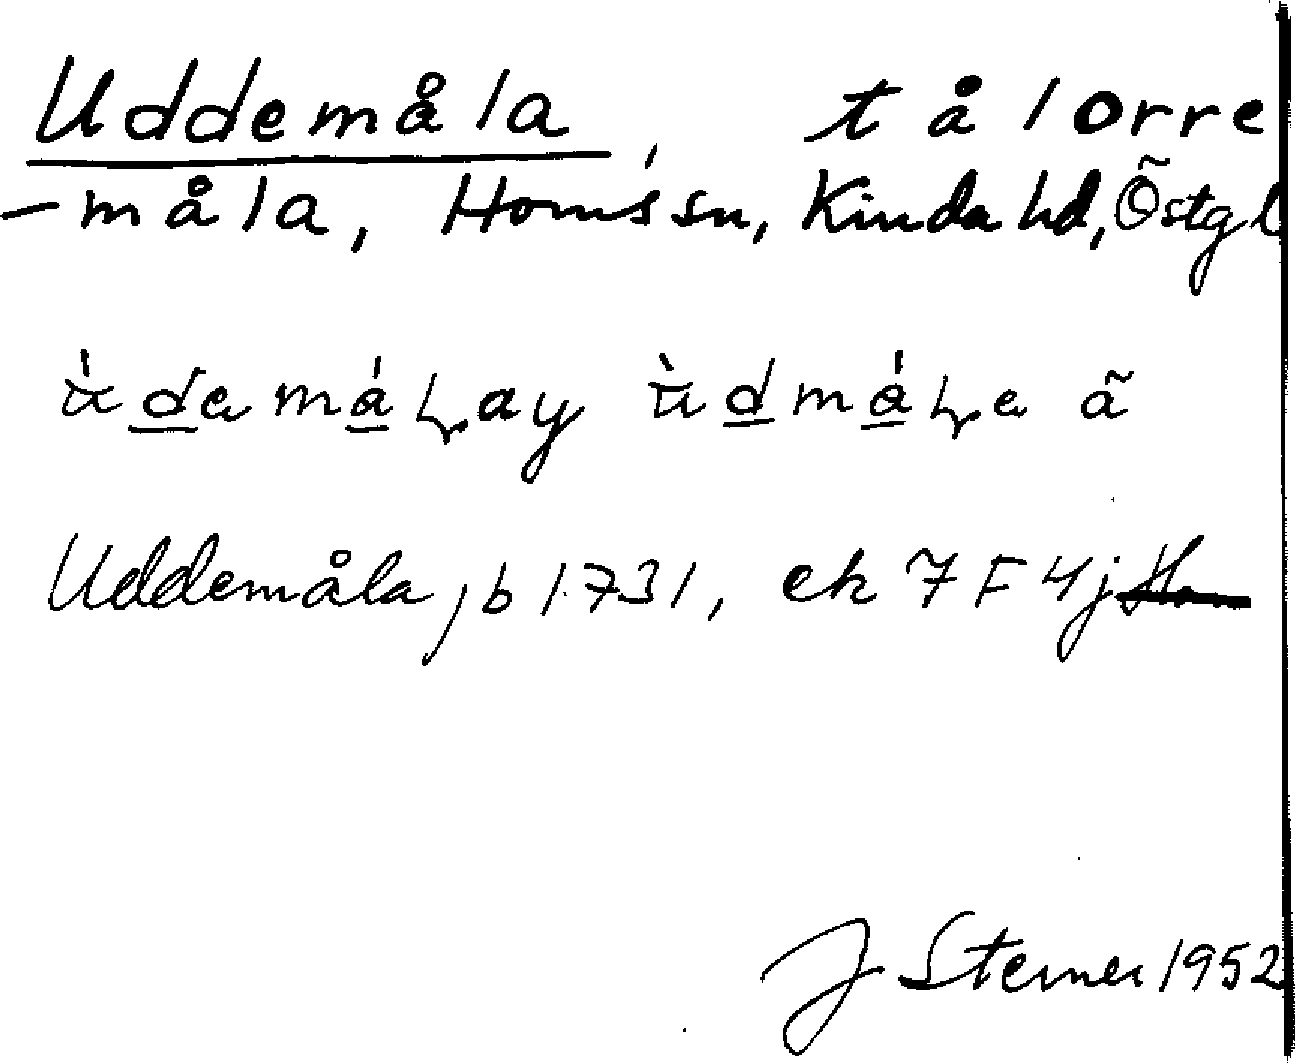 Uddemåla, t å lorre
-måla, Horns sn, Kinda hd, Östgl
Uddemåla, jb 1731, ek 7 F 4j
J Sterner 1952